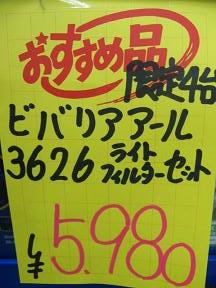 おすすめ品
限定4台
ビバリアアール
3626 ライト
フィルターセット
¥5.980